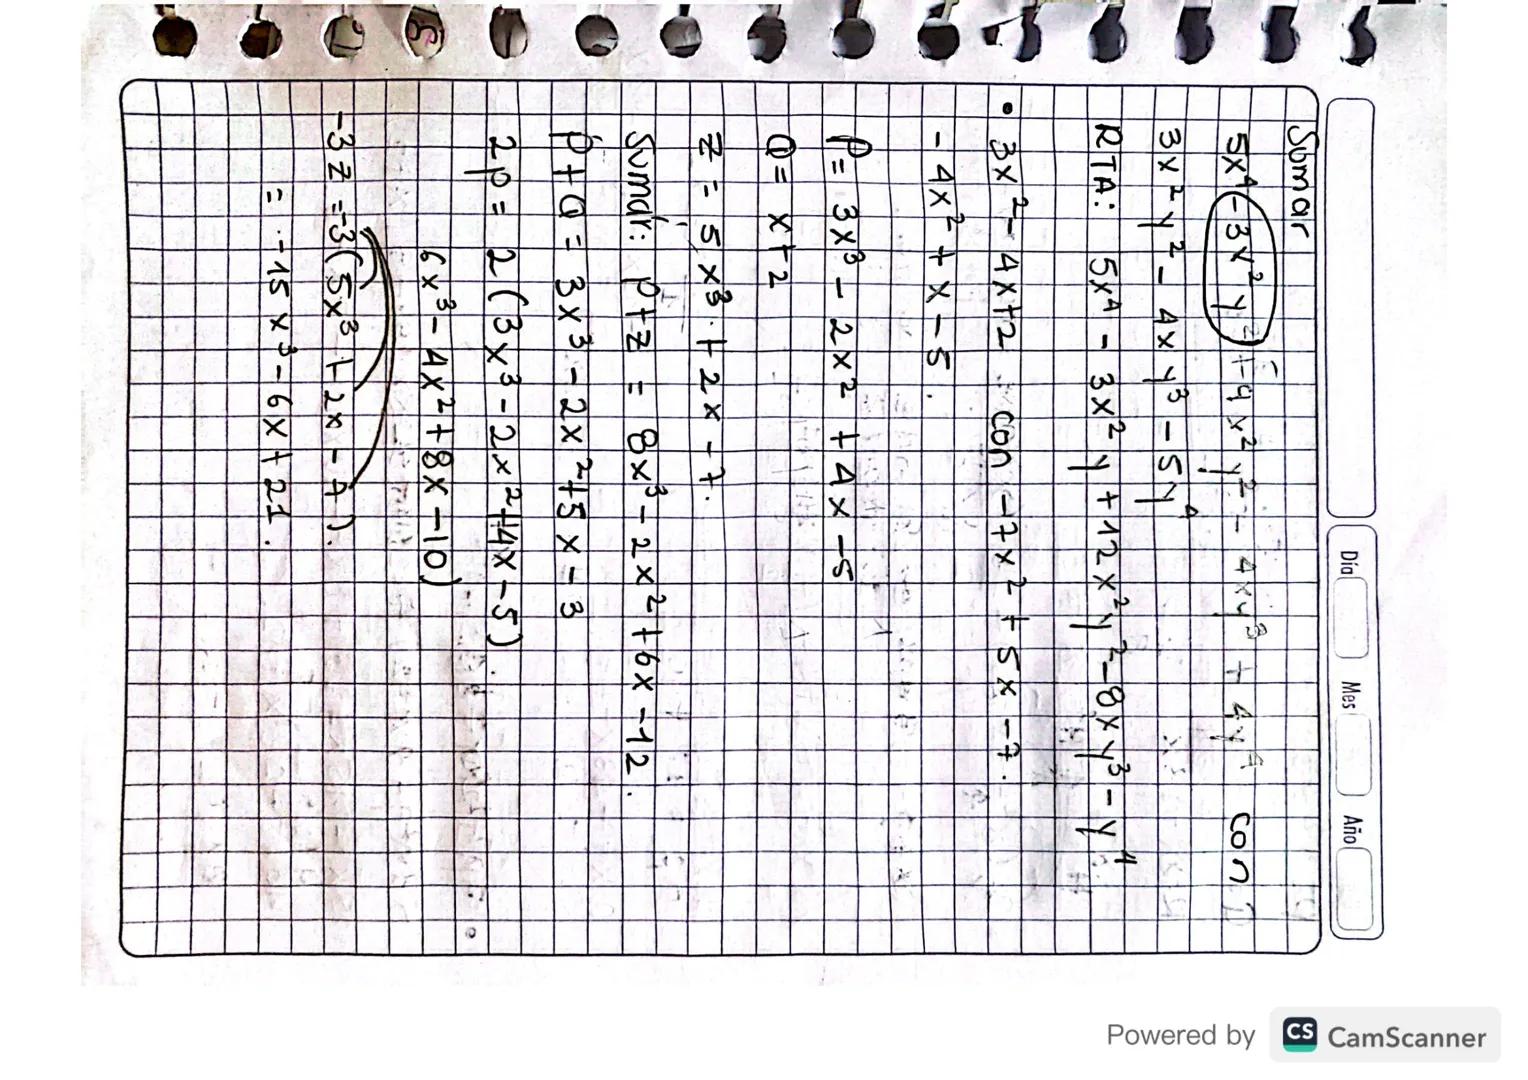 Día Mes Año
Sumar
5x⁴ - 3x²y + 9x²y² - 4xy³ + 4y⁴ con
3x²y² - 4xy³ - 5y⁴
RTA: 5x⁴ - 3x²y + 12x²y² - 8xy³ - y⁴
• 3x² - 4x + 2 con -7x² + 5x - 7.
- 4x² + x - 5.
P = 3x³ - 2x² + 4x - 5
Q = x + 2
z = 5x³ + 2x - 7.
Sumar: P + z = 8x³ - 2x² + 6x - 12.
P + Q = 3x³ - 2x² + 5x - 3
2p = 2(3x³ - 2x² + 4x - 5).
6x³ - 4x² + 8x - 10)
-3z = -3(5x³ + 2x - 7).
= -15x³ - 6x + 21.
Powered by CS CamScanner